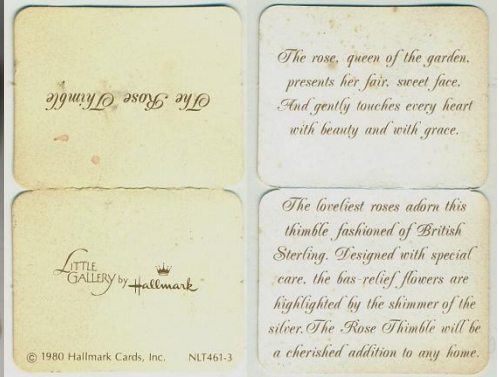 The Rose Thimble
LITTLE
GALLERY by Hallmark
© 1980 Hallmark Cards, Inc. NLT461-3
The rose, queen of the garden,
presents her fair, sweet face,
And gently touches every heart
with beauty and with grace.
The loveliest roses adorn this
thimble fashioned of British
Sterling. Designed with special
care, the bas-relief flowers are
highlighted by the shimmer of the
silver. The Rose Thimble will be
a cherished addition to any home.